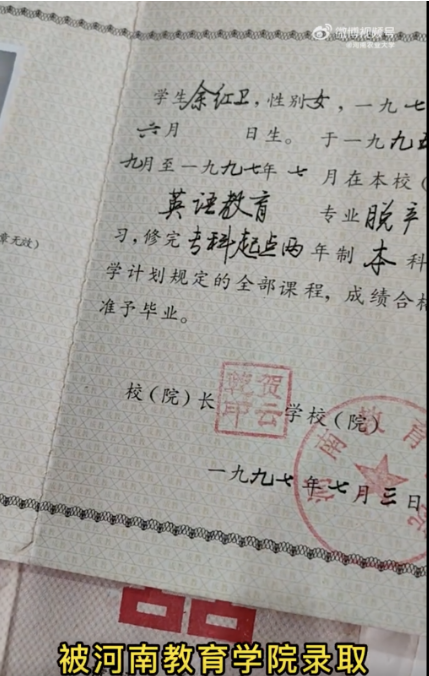 微博视频号
@河南农业大学
学生余红卫,性别女,一九七
六月 日生。于一九九五
九月至一九九七年七月在本校(
章无效)
英语教育 专业脱产
习,修完专科起点两年制本科
学计划规定的全部课程,成绩合格
准予毕业。
校(院)长 贺云乾印 学校(院)
河南教育学院
一九九七年七月三日
被河南教育学院录取